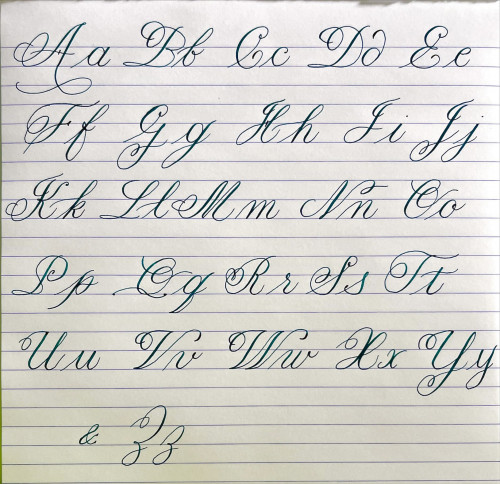 Aa Bb Cc Dd Ee
Ff Gg Hh Ii Jj
Kk Ll Mm Nn Oo
Pp Qq Rr Ss Tt
Uu Vv Ww Xx Yy
& Zz